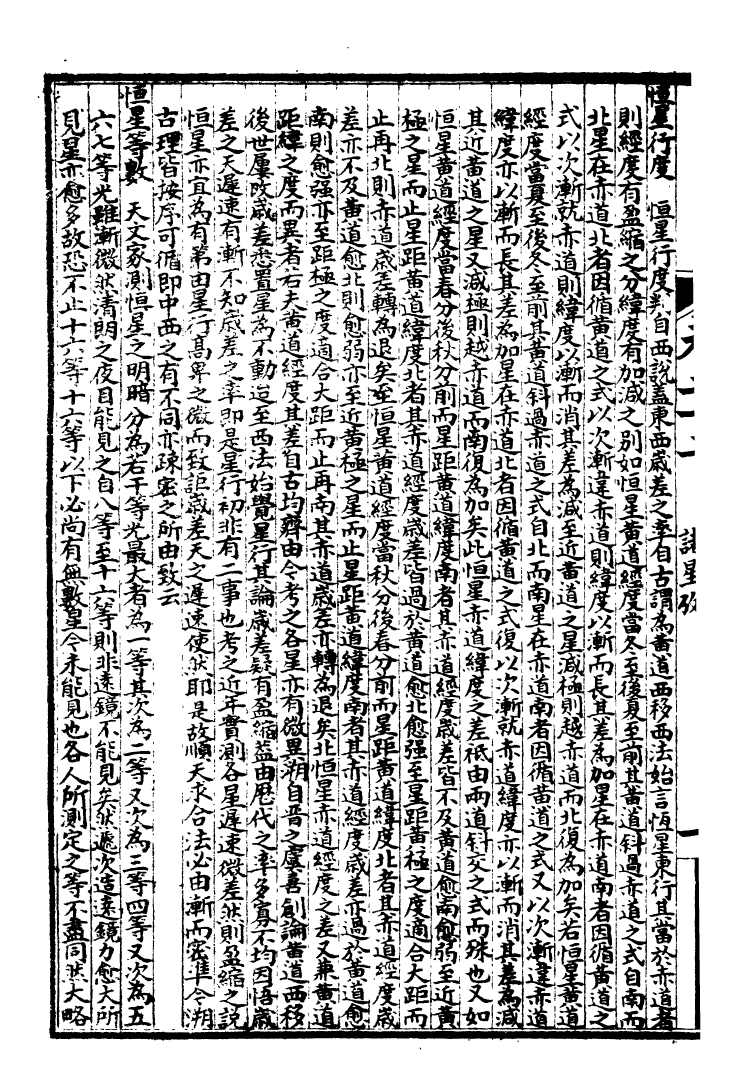 恒星行度　恒星行度判自西說蓋東西歲差之率自古謂為黃道西移西法始言恆星東行且當於赤道者
則經度有盈縮之分緯度有加減之別如恒星黃道經度當冬至後夏至前其黃道斜過赤道之式自南而
北星在赤道北者因循黃道之式以次漸違赤道則緯度以漸而長其差為加星在赤道南者因循黃道之
式以次漸就赤道則緯度以漸而消其差為減至近黃道之星減極則越赤道而北復為加矣若恒星黃道
經度當夏至後冬至前其黃道斜過赤道之式自北而南星在赤道南者因循黃道之式又以次漸違赤道
緯度亦以漸而長其差為加星在赤道北者因循黃道之式復以次漸就赤道緯度亦以漸而消其差為減
其近黃道之星又減極則越赤道而南復為加矣此恒星赤道緯度之差祇由兩道斜交之式而殊也又如
恒星黃道經度當春分後秋分前而星距黃道緯度南者其赤道經度歲差皆不及黃道愈南愈弱至近黃
極之星而止星距黃道緯度北者其赤道經度歲差皆過於黃道愈北愈强至星距黃極之度適合大距而
止再北則赤道歲差轉為退矣至恒星黃道經度當秋分後春分前而星距黃道緯度北者其赤道經度歲
差亦不及黃道愈北則愈弱亦至近黃極之星而止星距黃道緯度南者其赤道經度歲差亦過於黃道愈
南則愈强亦至距極之度適合大距而止再南其赤道歲差亦轉為退矣北恒星赤道經度之差又兼黃道
距緯之度而異者右夫黃道經度其差自古均齊由今考之各星亦有微異朔自晋之虞喜創論黃道西移
後世屢改歲差悉置星為不動迨至西法始覺星行其論歲差疑有盈縮益由歷代之率多寡不均因悟歲
差之天遲速有漸不知歲差之率即是星行初非有二事也考之近年實測各星遲速微差然則盈縮之說
恒星亦宜為有第由星行高卑之微而致詎歲差天之遲速使然耶是故順天求合法必由漸而密準今朔
古理皆按序可循即中西之有不同亦疎密之所由致云
恒星等數　天文家測恒星之明暗分為若干等光最大者為一等其次為二等又次為三等四等又次為五
六七等光雖漸微然清朗之夜目能見之自八等至十六等則非遠鏡不能見矣然遞次造遠鏡力愈大所
見星亦愈多故恐不止十六等十六等以下必尚有無數星今未能見也各人所測定之等不盡同然大略
諸星攷